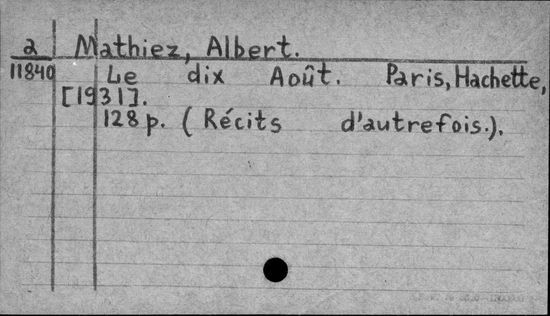 a Mathiez, Albert.
11840 Le dix Août. Paris, Hachette,
[1931].
128 p. (Récits d'autrefois.).